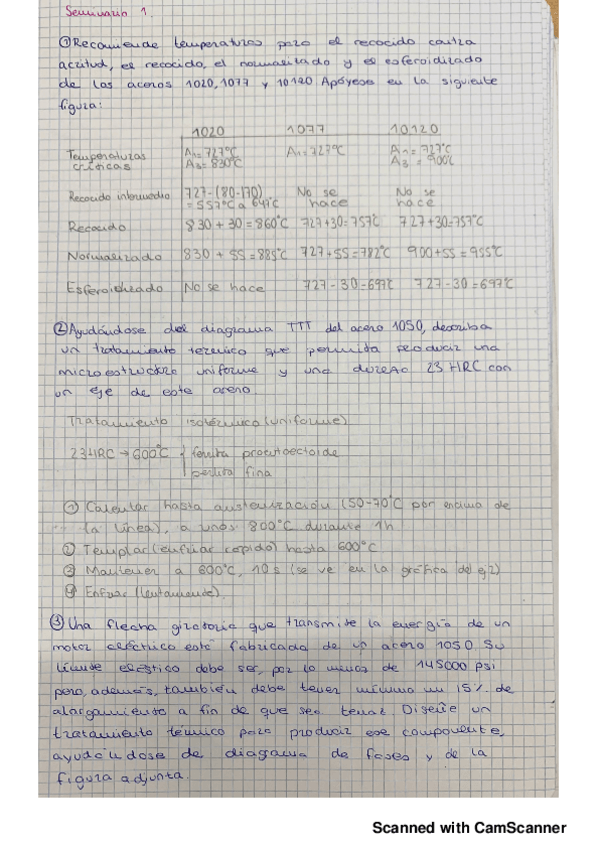 Seminario 1.
① Recomiende temperaturas para el recocido contra
acritud, el recocido, el normalizado y el esferoidizado
de los aceros 1020, 1077 y 10120 Apóyese en la siguiente
figura:
1020 1077 10120
Temperaturas críticas A₁=727°C A₃=830°C A₁=727°C A₁=727°C A₃=900°C
Recocido intermedio 727-(80-170) =557°C a 647°C No se hace No se hace
Recocido 830+30=860°C 727+30=757°C 727+30=757°C
Normalizado 830+55=885°C 727+55=782°C 900+55=955°C
Esferoidizado No se hace 727-30=697°C 727-30=697°C
② Ayudándose del diagrama TTT del acero 1050, describa
un tratamiento térmico que permita producir una
microestructura uniforme y una dureza 23 HRC con
un eje de este acero
Tratamiento isotérmico (uniforme)
23HRC → 600°C { ferrita proeutectoide
perlita fina
① Calentar hasta austenización (50-70°C por encima de
la línea), a unos 800°C durante 1h
② Templar (enfriar rápido) hasta 600°C
③ Mantener a 600°C, 10s (se ve en la gráfica del ej2)
④ Enfriar (lentamente).
③ Una flecha giratoria que transmite la energía de un
motor eléctrico está fabricada de un acero 1050. Su
límite elástico debe ser, por lo menos de 145000 psi
pero, además, también debe tener mínimo un 15% de
alargamiento a fin de que sea tenaz. Diseñe un
tratamiento térmico para producir ese componente,
ayudándose de diagrama de fases y de la
figura adjunta.
Scanned with CamScanner